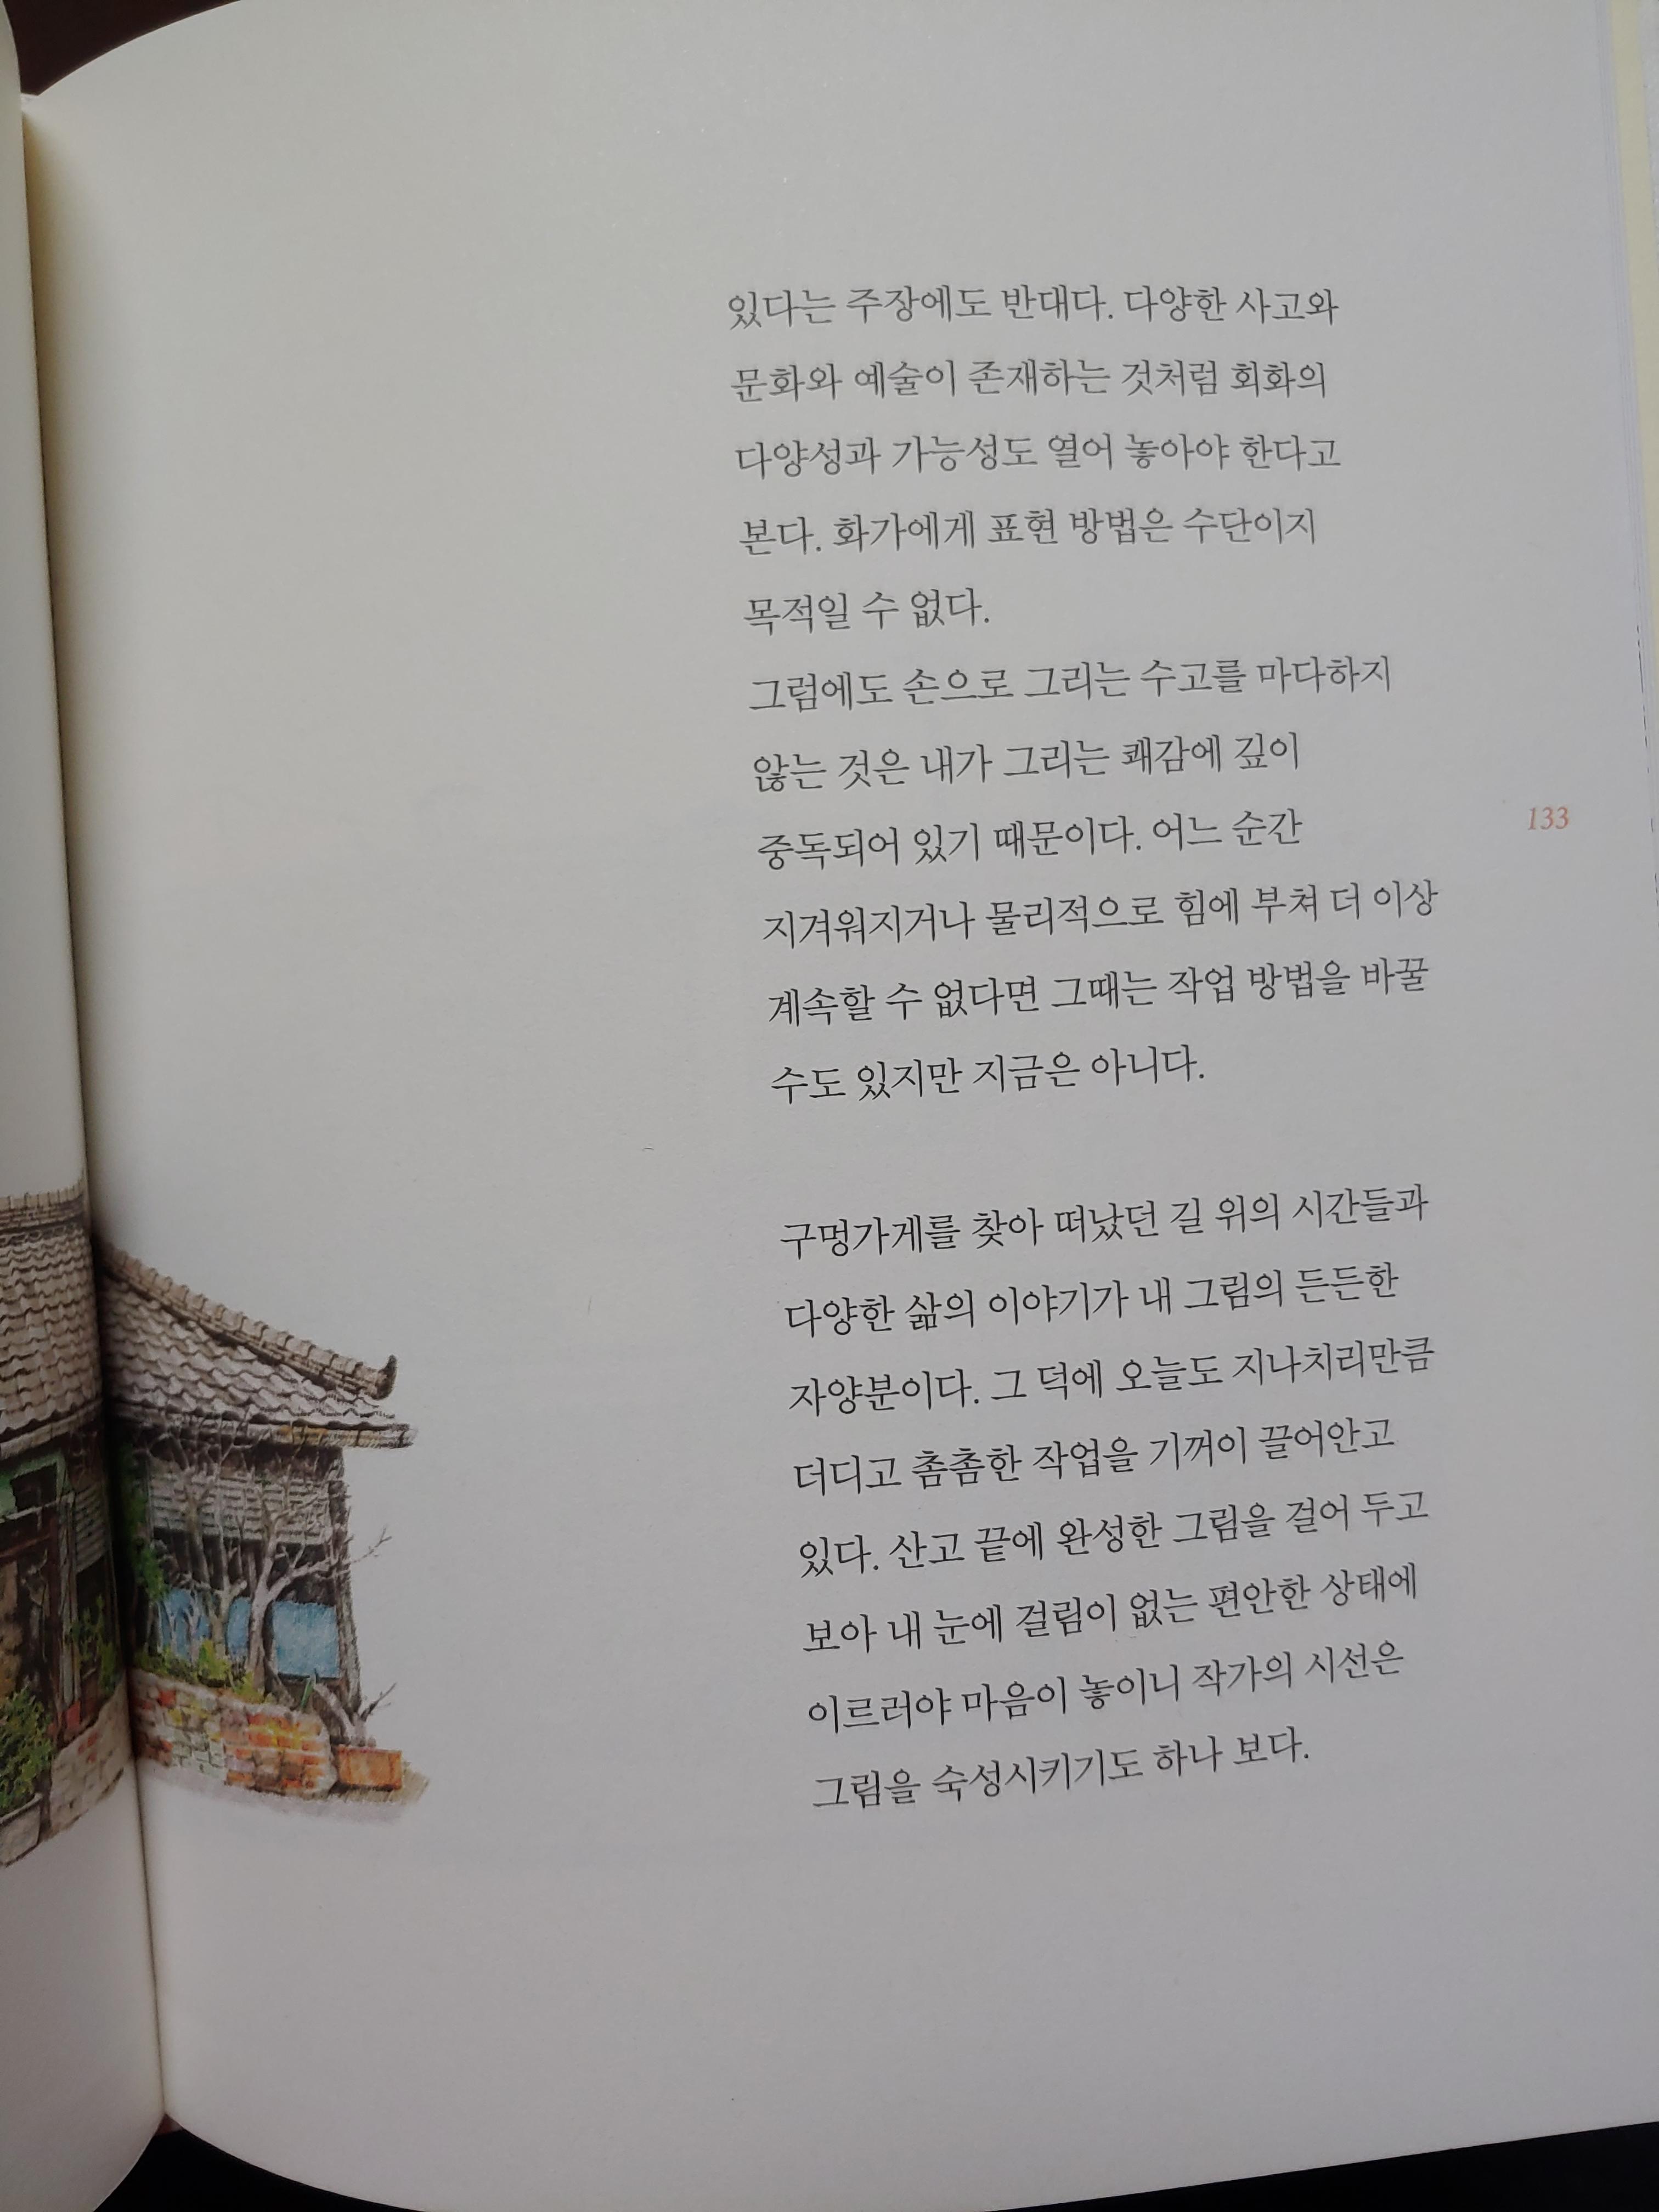 있다는 주장에도 반대다. 다양한 사고와
문화와 예술이 존재하는 것처럼 회화의
다양성과 가능성도 열어 놓아야 한다고
본다. 화가에게 표현 방법은 수단이지
목적일 수 없다.
그럼에도 손으로 그리는 수고를 마다하지
않는 것은 내가 그리는 쾌감에 깊이
중독되어 있기 때문이다. 어느 순간
133
지겨워지거나 물리적으로 힘에 부쳐 더 이상
계속할 수 없다면 그때는 작업 방법을 바꿀
수도 있지만 지금은 아니다.
구멍가게를 찾아 떠났던 길 위의 시간들과
다양한 삶의 이야기가 내 그림의 든든한
자양분이다. 그 덕에 오늘도 지나치리만큼
더디고 촘촘한 작업을 기꺼이 끌어안고
있다. 산고 끝에 완성한 그림을 걸어 두고
보아 내 눈에 걸림이 없는 편안한 상태에
이르러야 마음이 놓이니 작가의 시선은
그림을 숙성시키기도 하나 보다.